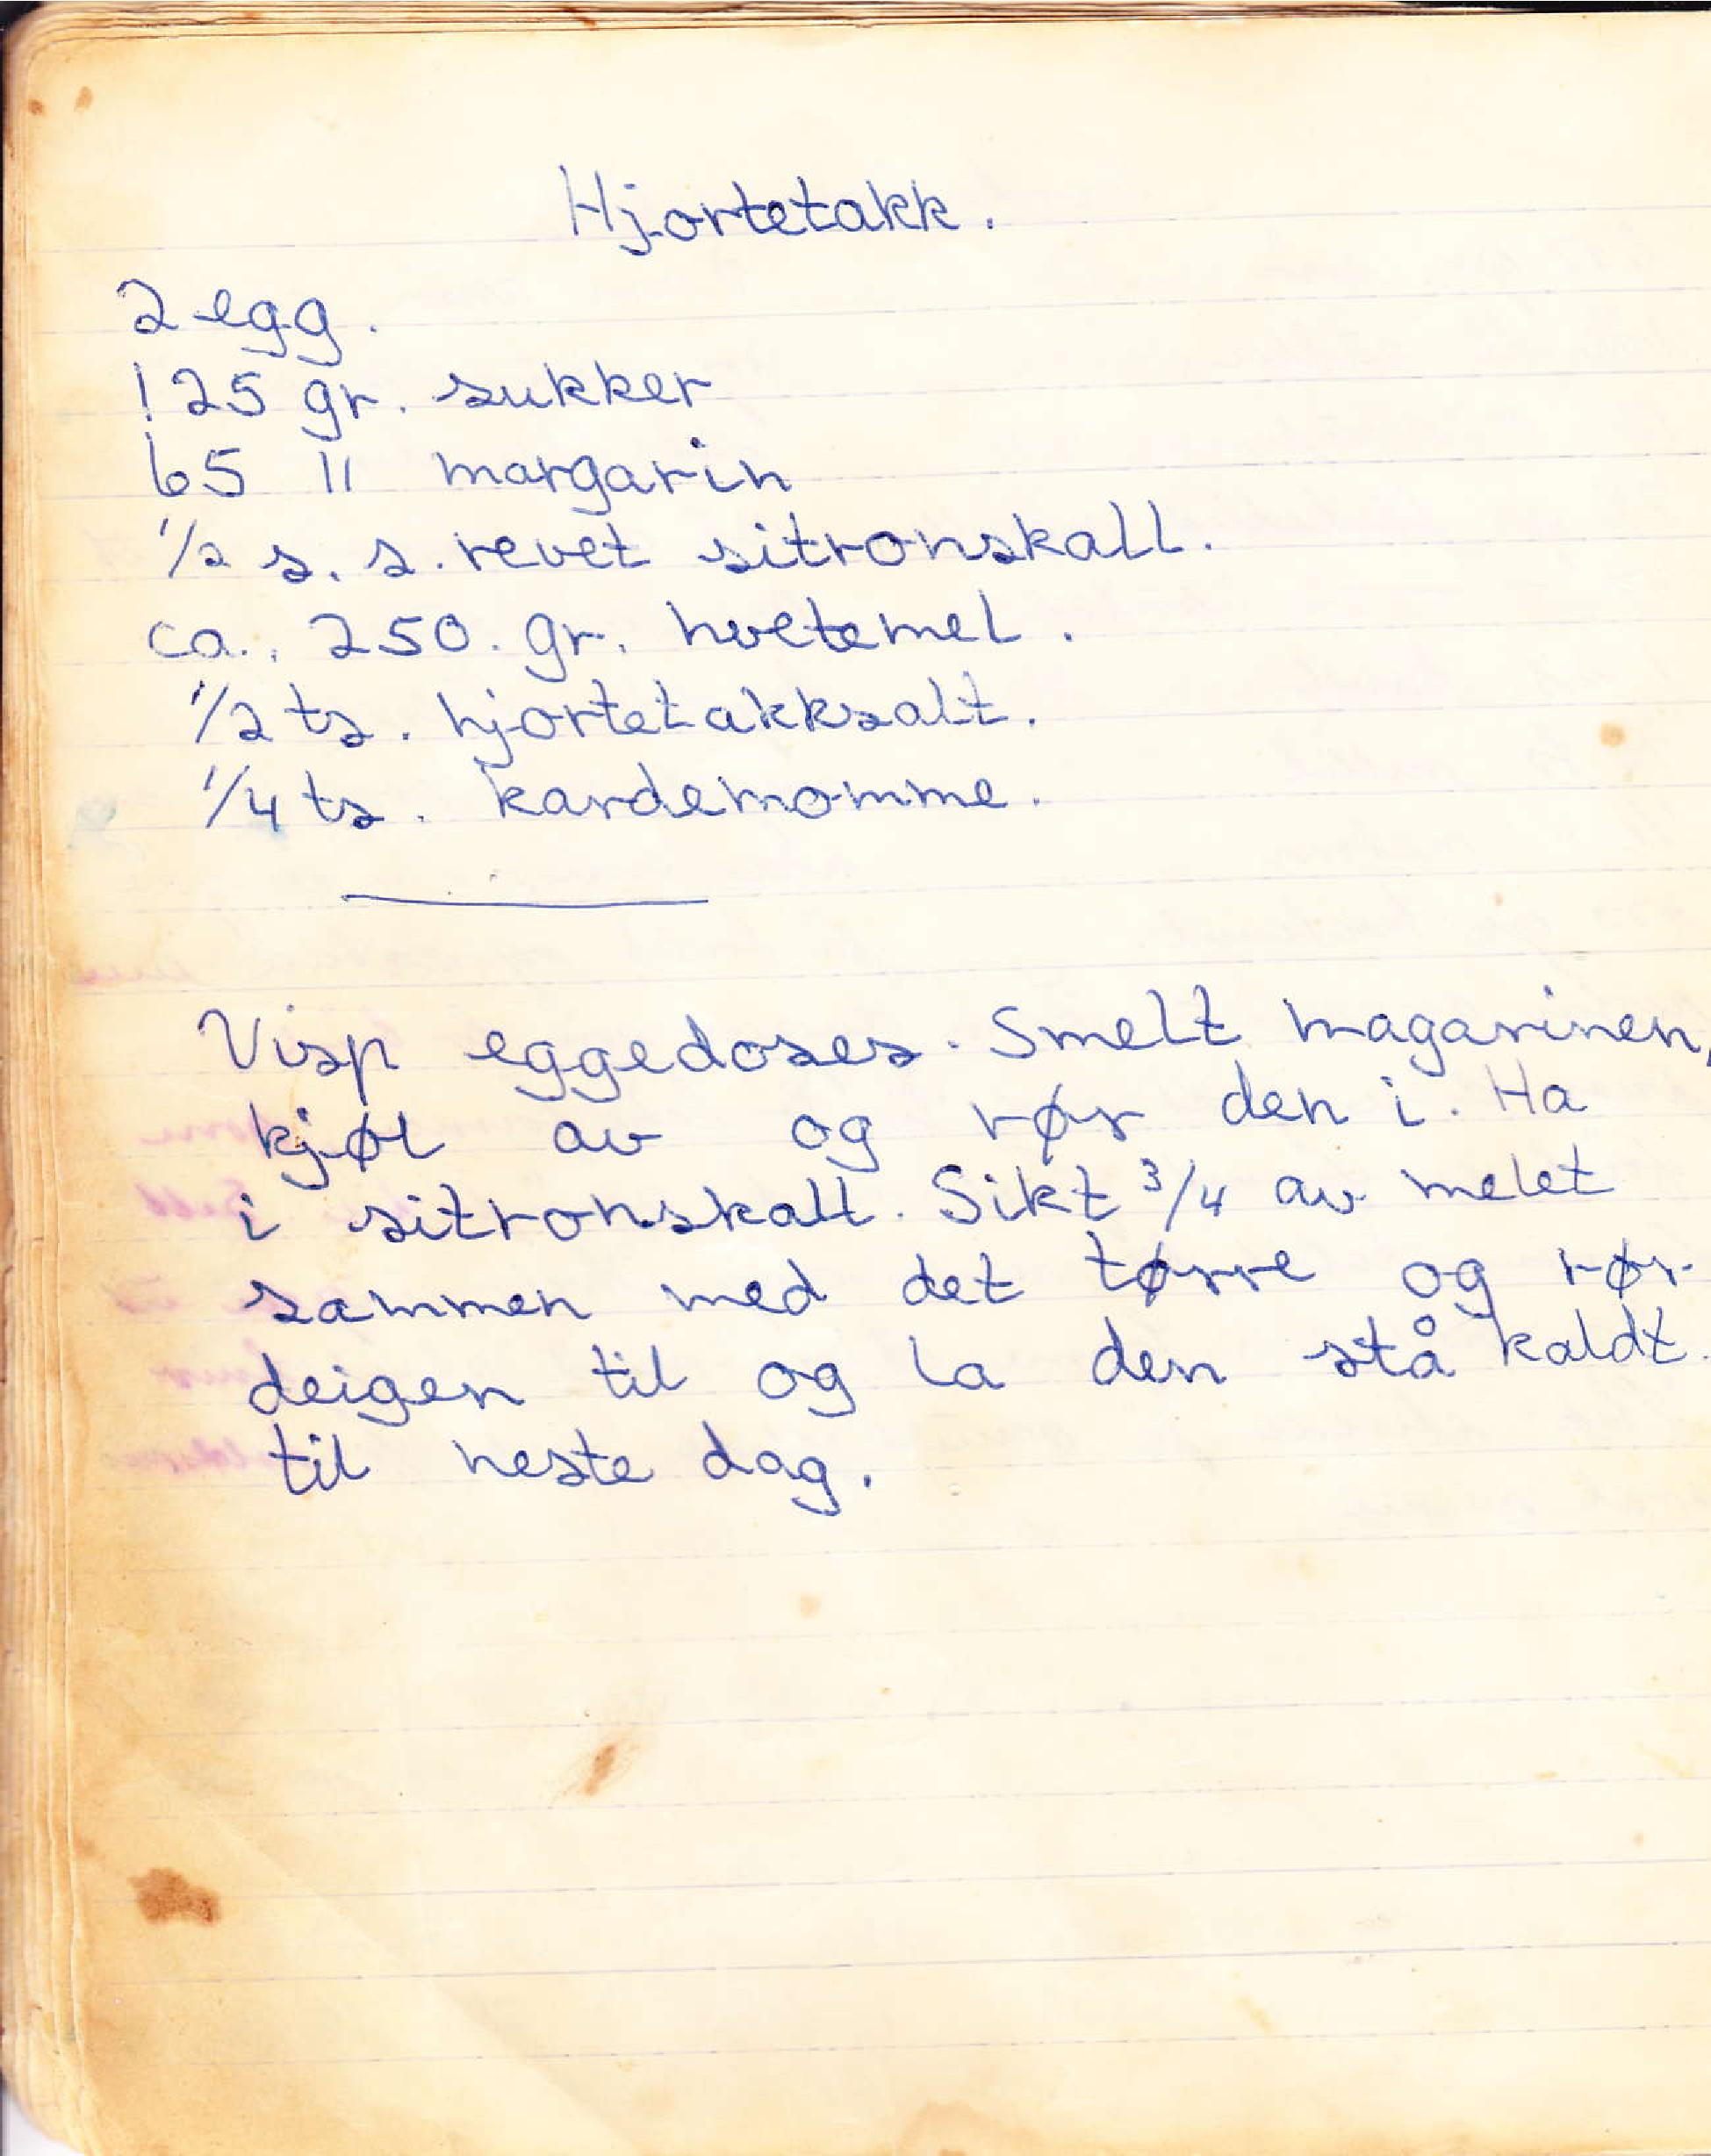 Hjortetakk.
2 egg.
125 gr. sukker
65 " margarin
1/2 s. s. revet sitronskall.
ca. 250. gr. hvetemel.
1/2 ts. hjortetakksalt.
1/4 ts. kardemomme.
Visp eggedoses. Smelt magarinen,
kjøl av og rør den i. Ha
i sitronskall. Sikt 3/4 av melet
sammen med det tørre og rør
deigen til og la den stå kaldt.
til neste dag.